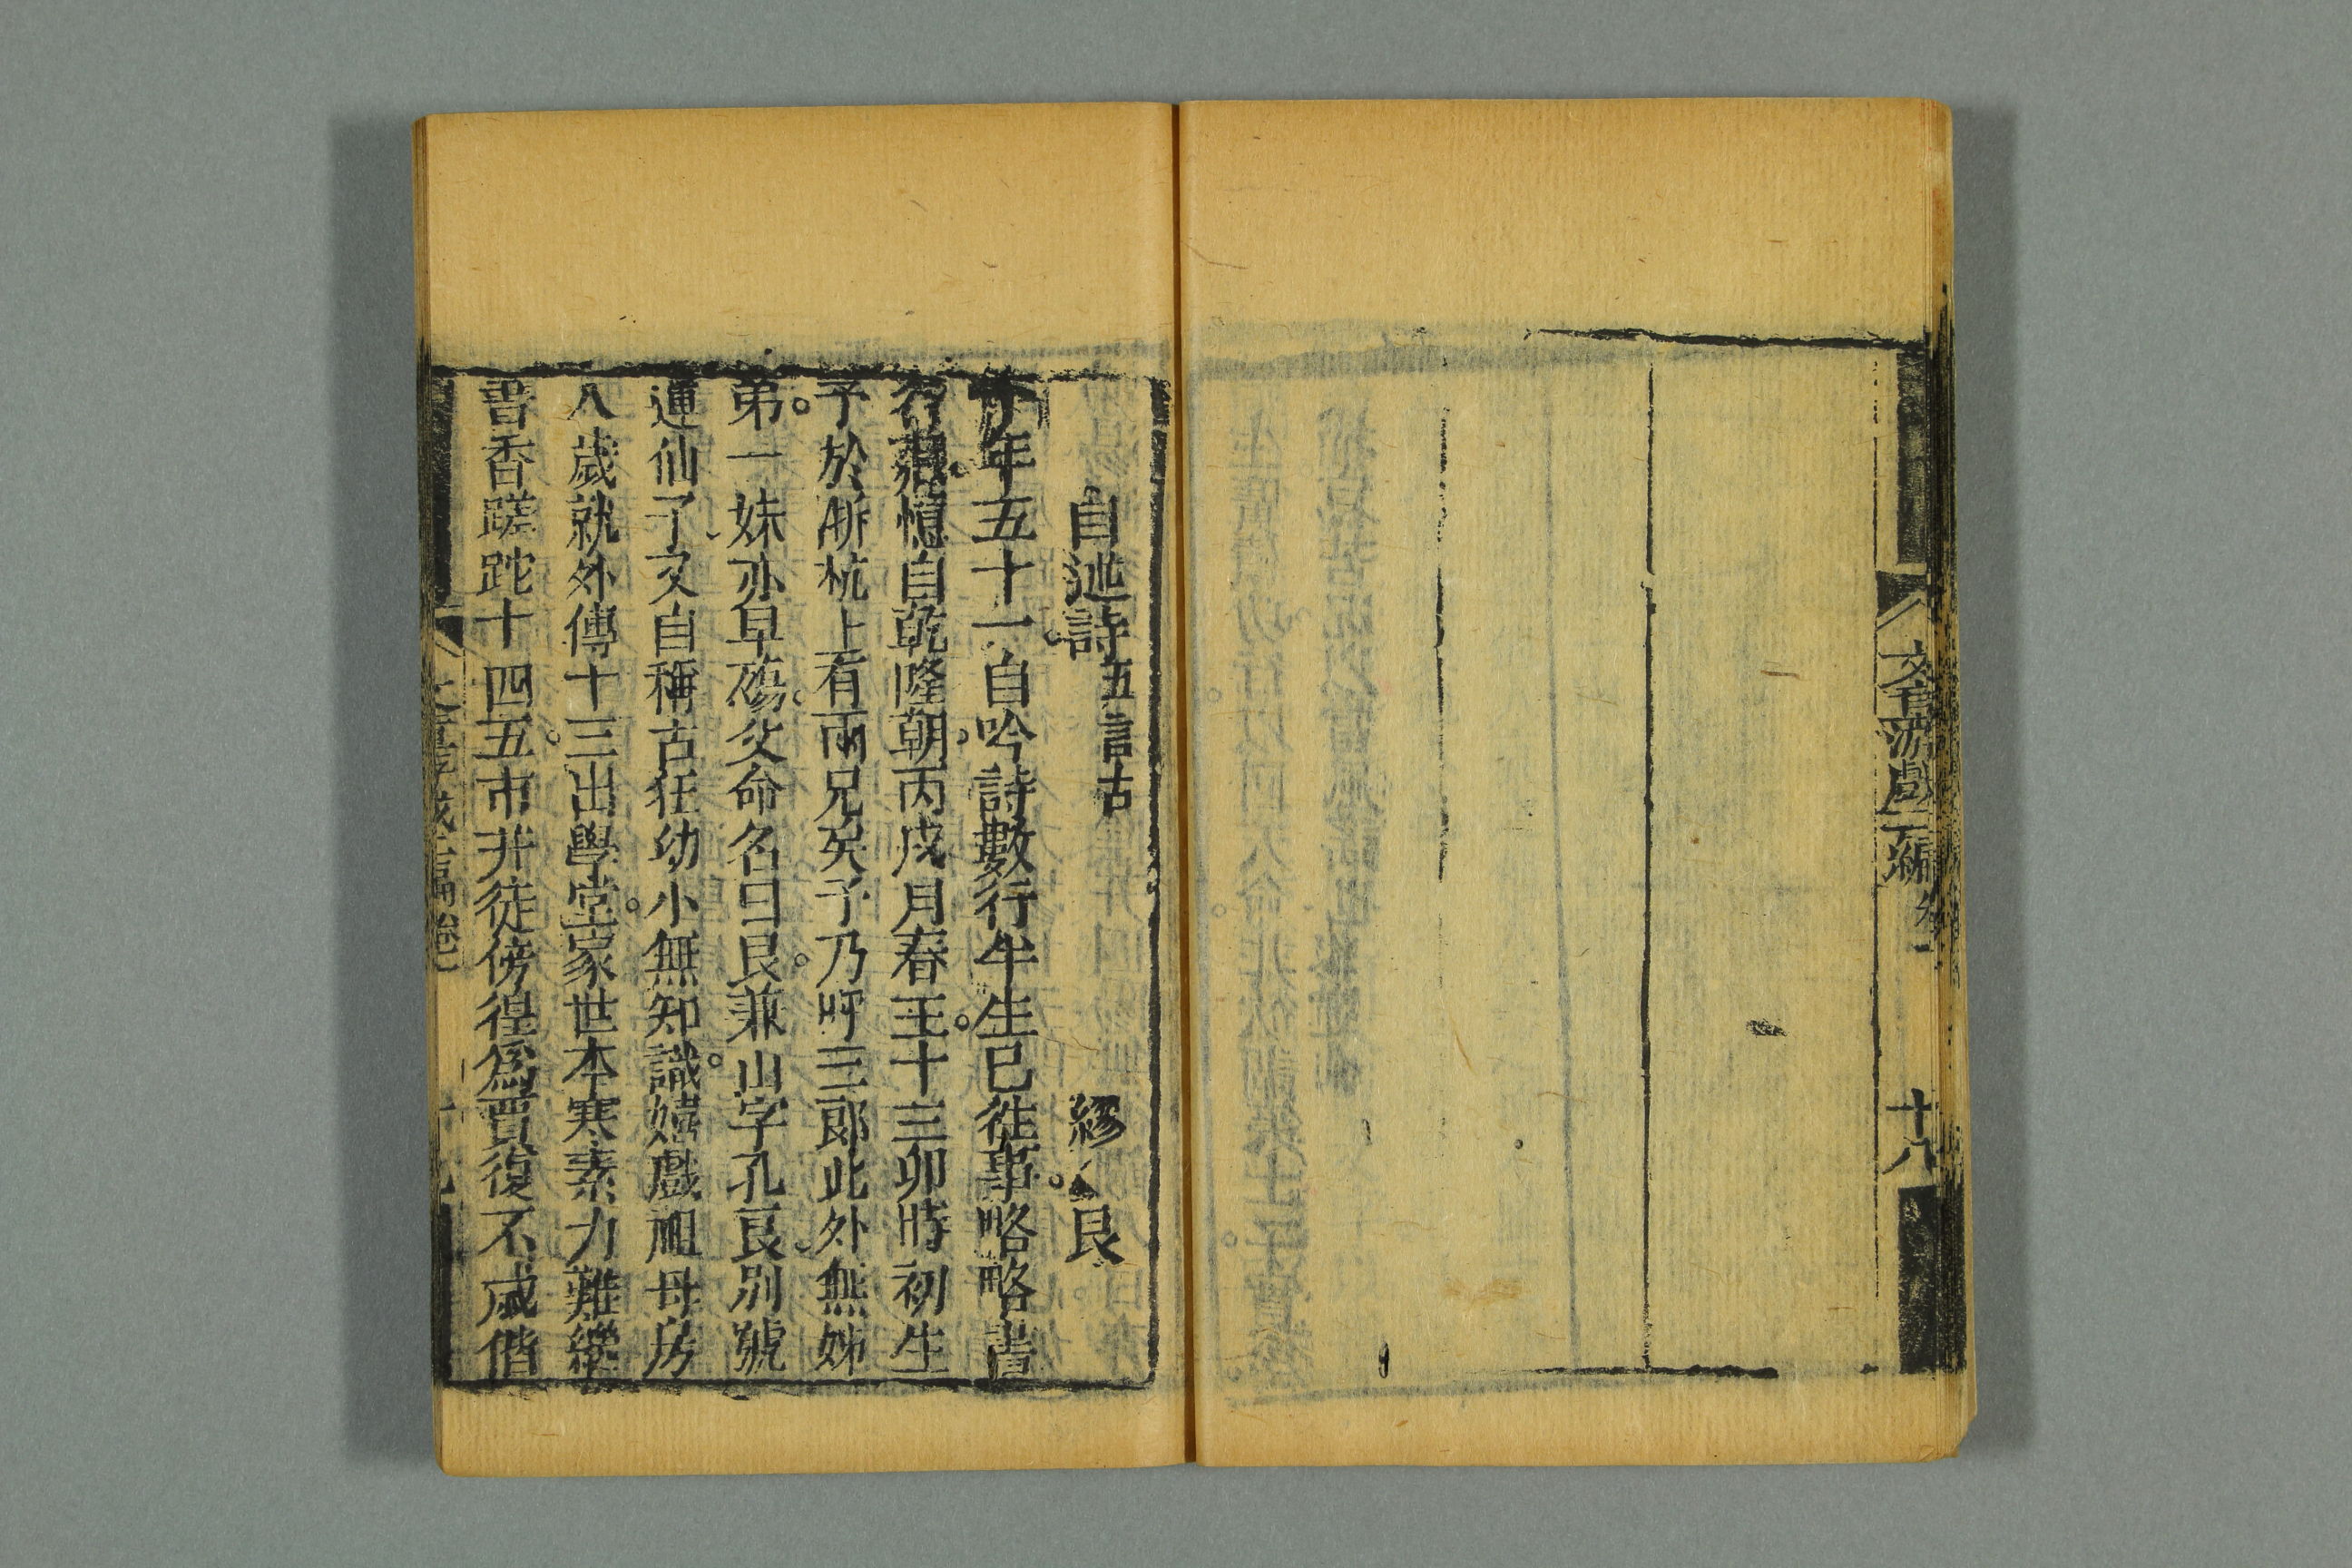 文章游戲二編 卷一
十八
自述詩 五言古
繆 艮
予年五十一自吟詩數行半生已徃事。略略書
行藏憶自乾隆朝。丙戌月春王。十三卯時初生
予於浙杭上有兩兄矣予乃呼三郎此外無姊
弟。一妹亦早殤父命名曰艮。兼山字孔良別號
蓮仙了又自稱古狂幼小無知識。嬉戲祖母房
八歲就外傅十三出學堂。家世本寒素力難繼
書香蹉跎十四五。市井徒傍徨爲賈復不成偕